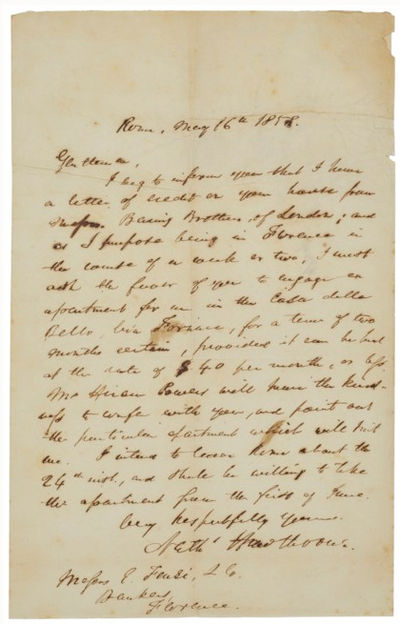 Rome, May 16th 1858.
Gentlemen,
I beg to inform you that I have
a letter of credit on your house from
Messrs. Baring Brothers, of London; and
as I purpose being in Florence in
the course of a week or two, I must
ask the favor of you to engage an
apartment for me in the Casa della
Bello, Via Fornace, for a term of two
months certain, provided it can be had
at the rate of $40 per month, or less.
Mr Hiram Powers will have the kind-
ness to confer with you, and point out
the particular apartment which will suit
me. I intend to leave Rome about the
24th inst, and shall be willing to take
the apartment from the first of June.
Very Respectfully Yours.
Nath' Hawthorne.
Messrs E. Fenzi, & Co.
Bankers,
Florence.